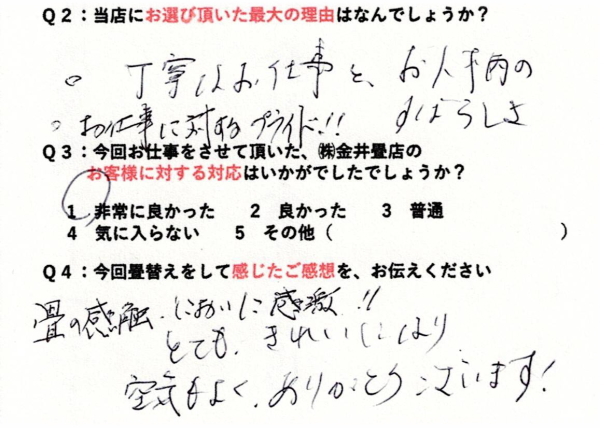 Q2：当店にお選び頂いた最大の理由はなんでしょうか？
。丁寧なお仕事と、お人柄の
すばらしさ
。お仕事に対するプライド!!
Q3：今回お仕事をさせて頂いた、㈱金井畳店の
お客様に対する対応はいかがでしたでしょうか？
1 非常に良かった 2 良かった 3 普通
4 気に入らない 5 その他（ ）
Q4：今回畳替えをして感じたご感想を、お伝えください
畳の感触、においに感激!!
とても、きれいになり
空気もよく、ありがとうございます!